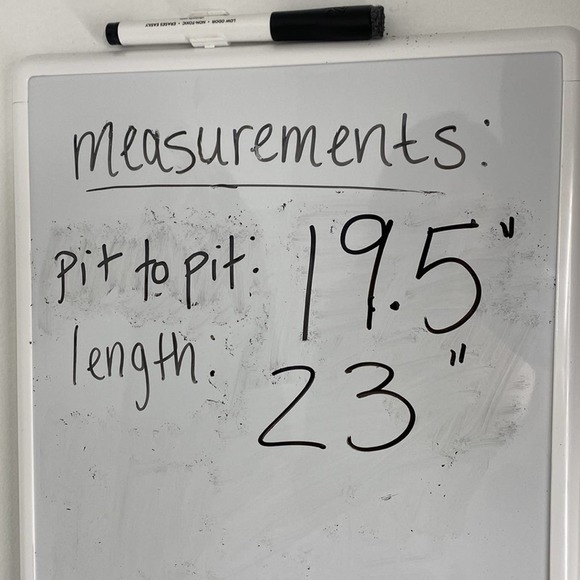 LOW ODOR • NON-TOXIC • ERASES EASILY
measurements:
pit to pit: 19.5"
length: 23"